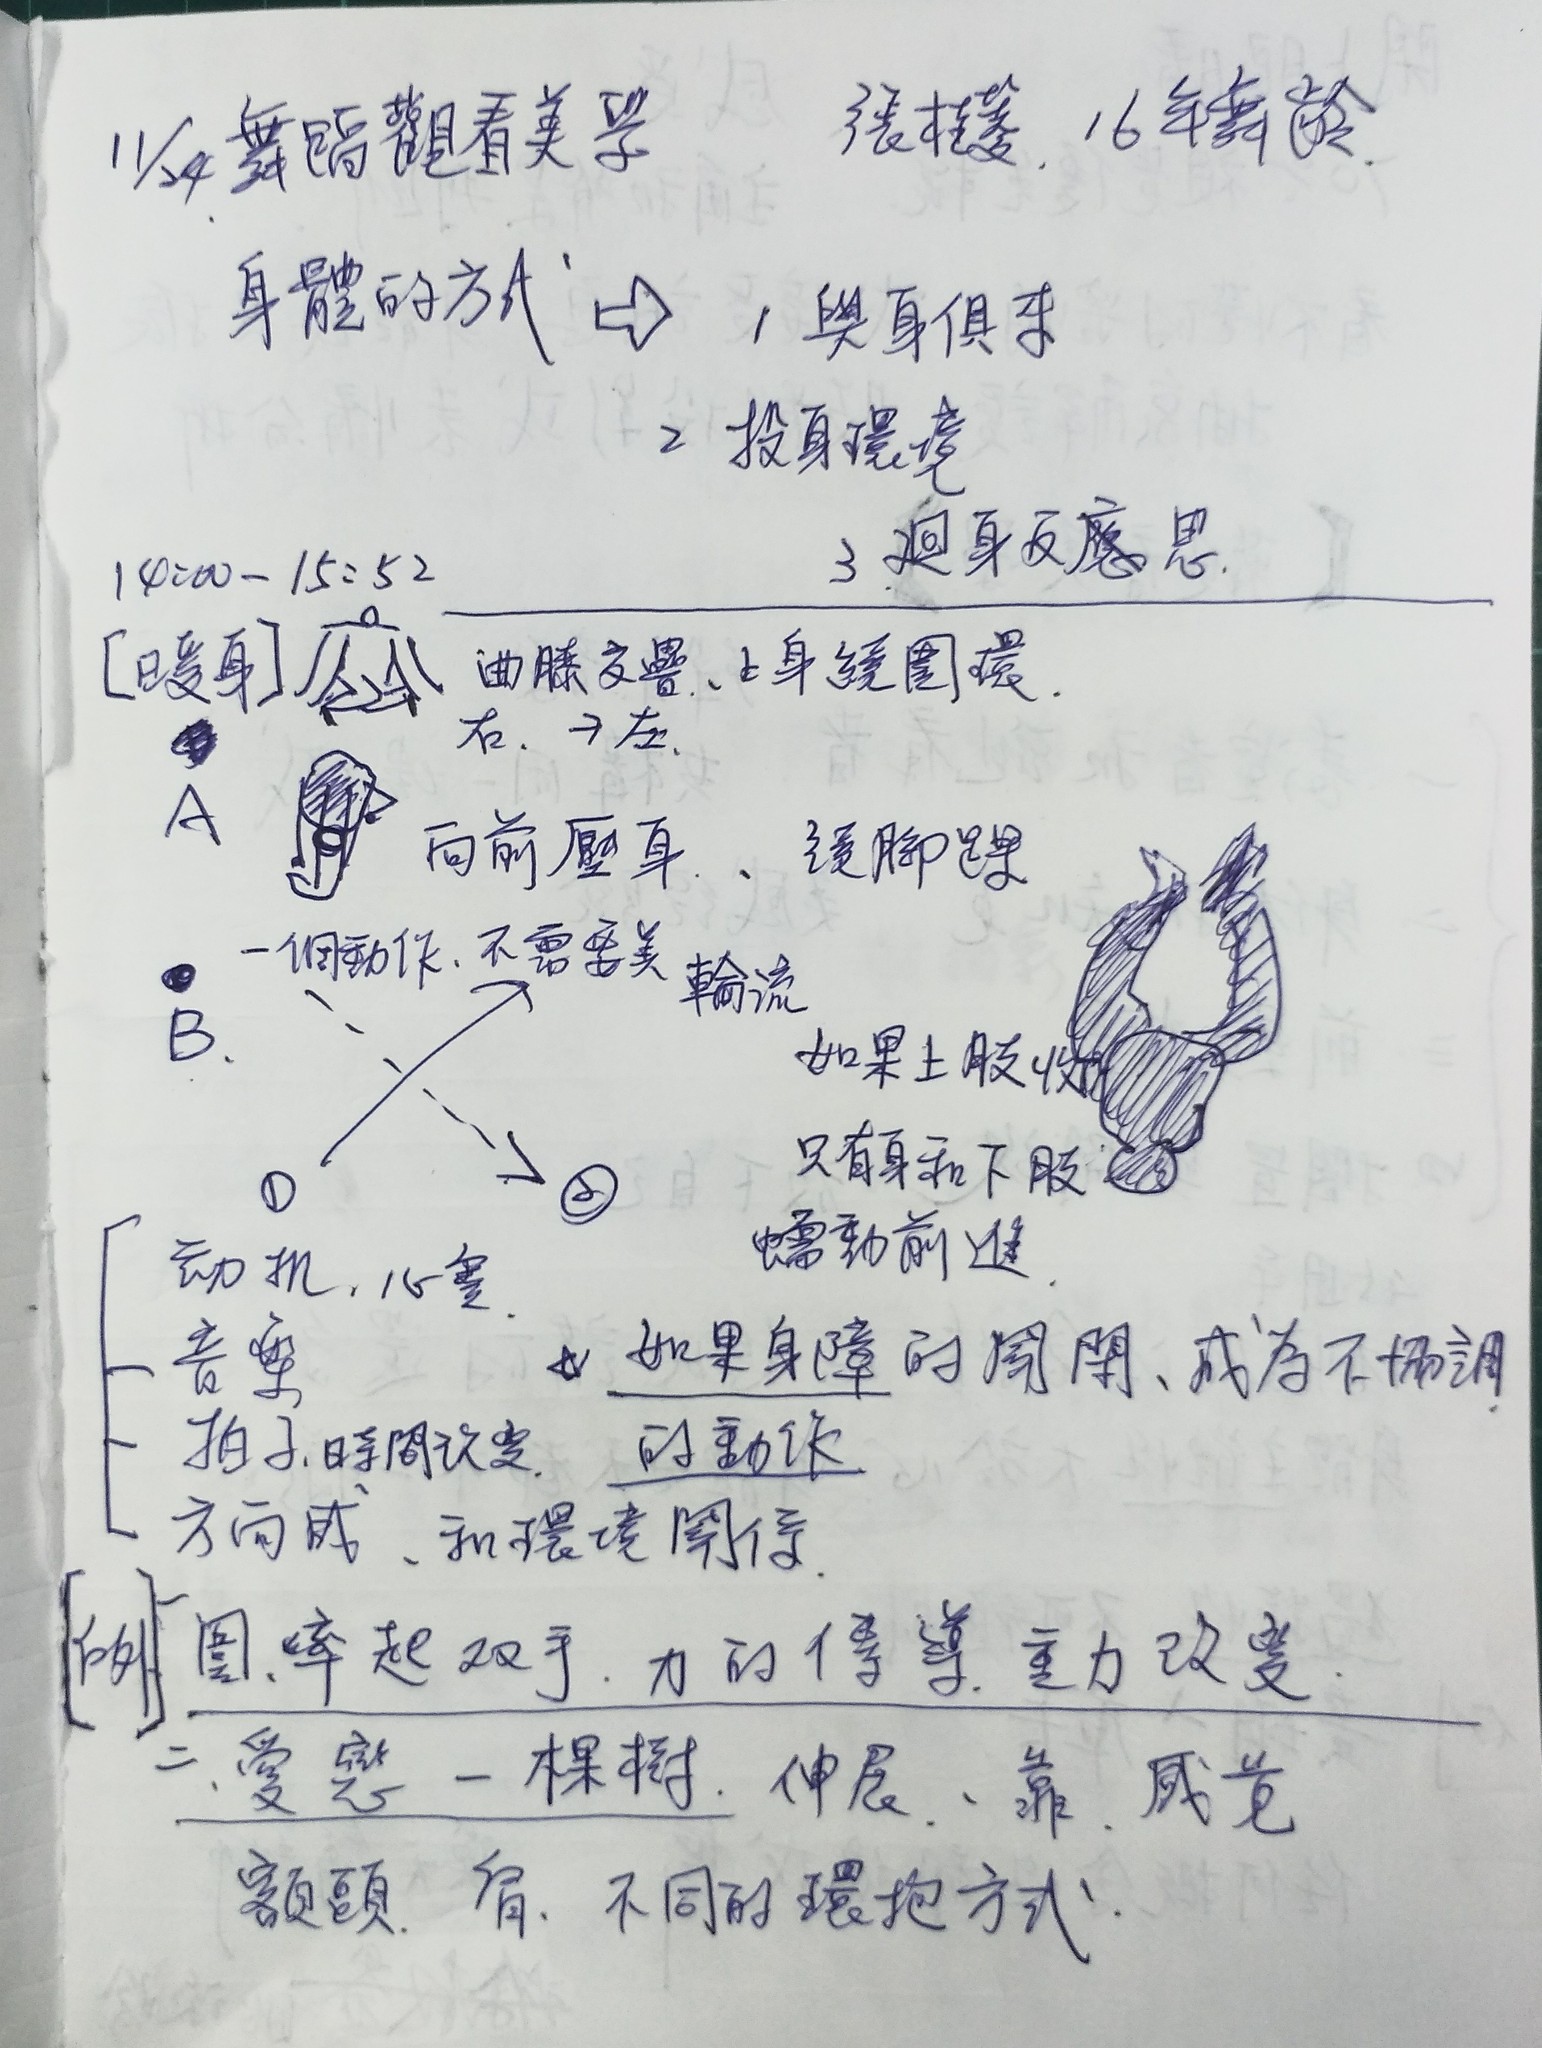 11/24 舞蹈觀看美學 張桂菱. 16年舞齡.
身體的方式 ⇨ 1 與身俱來
2 投身環境
3 迴身反應思.
14:00-15:52
[暖身] 曲膝交疊、上身繞圓環.
右. →左.
A
向前壓身、繞腳踝
B. 一個動作、不需要美 輪流
如果上肢收
只有身和下肢
蠕動前進.
① ②
动机、心靈.
音樂
拍子、時間改变.
方向感、和環境関係.
如果身障的関閉、成為不協調
的動作
[例] 一 圈、牽起双手. 力的傳導. 重力改變.
二、愛戀一棵樹. 伸展、靠. 感覚
額頭. 肩. 不同的環抱方式.